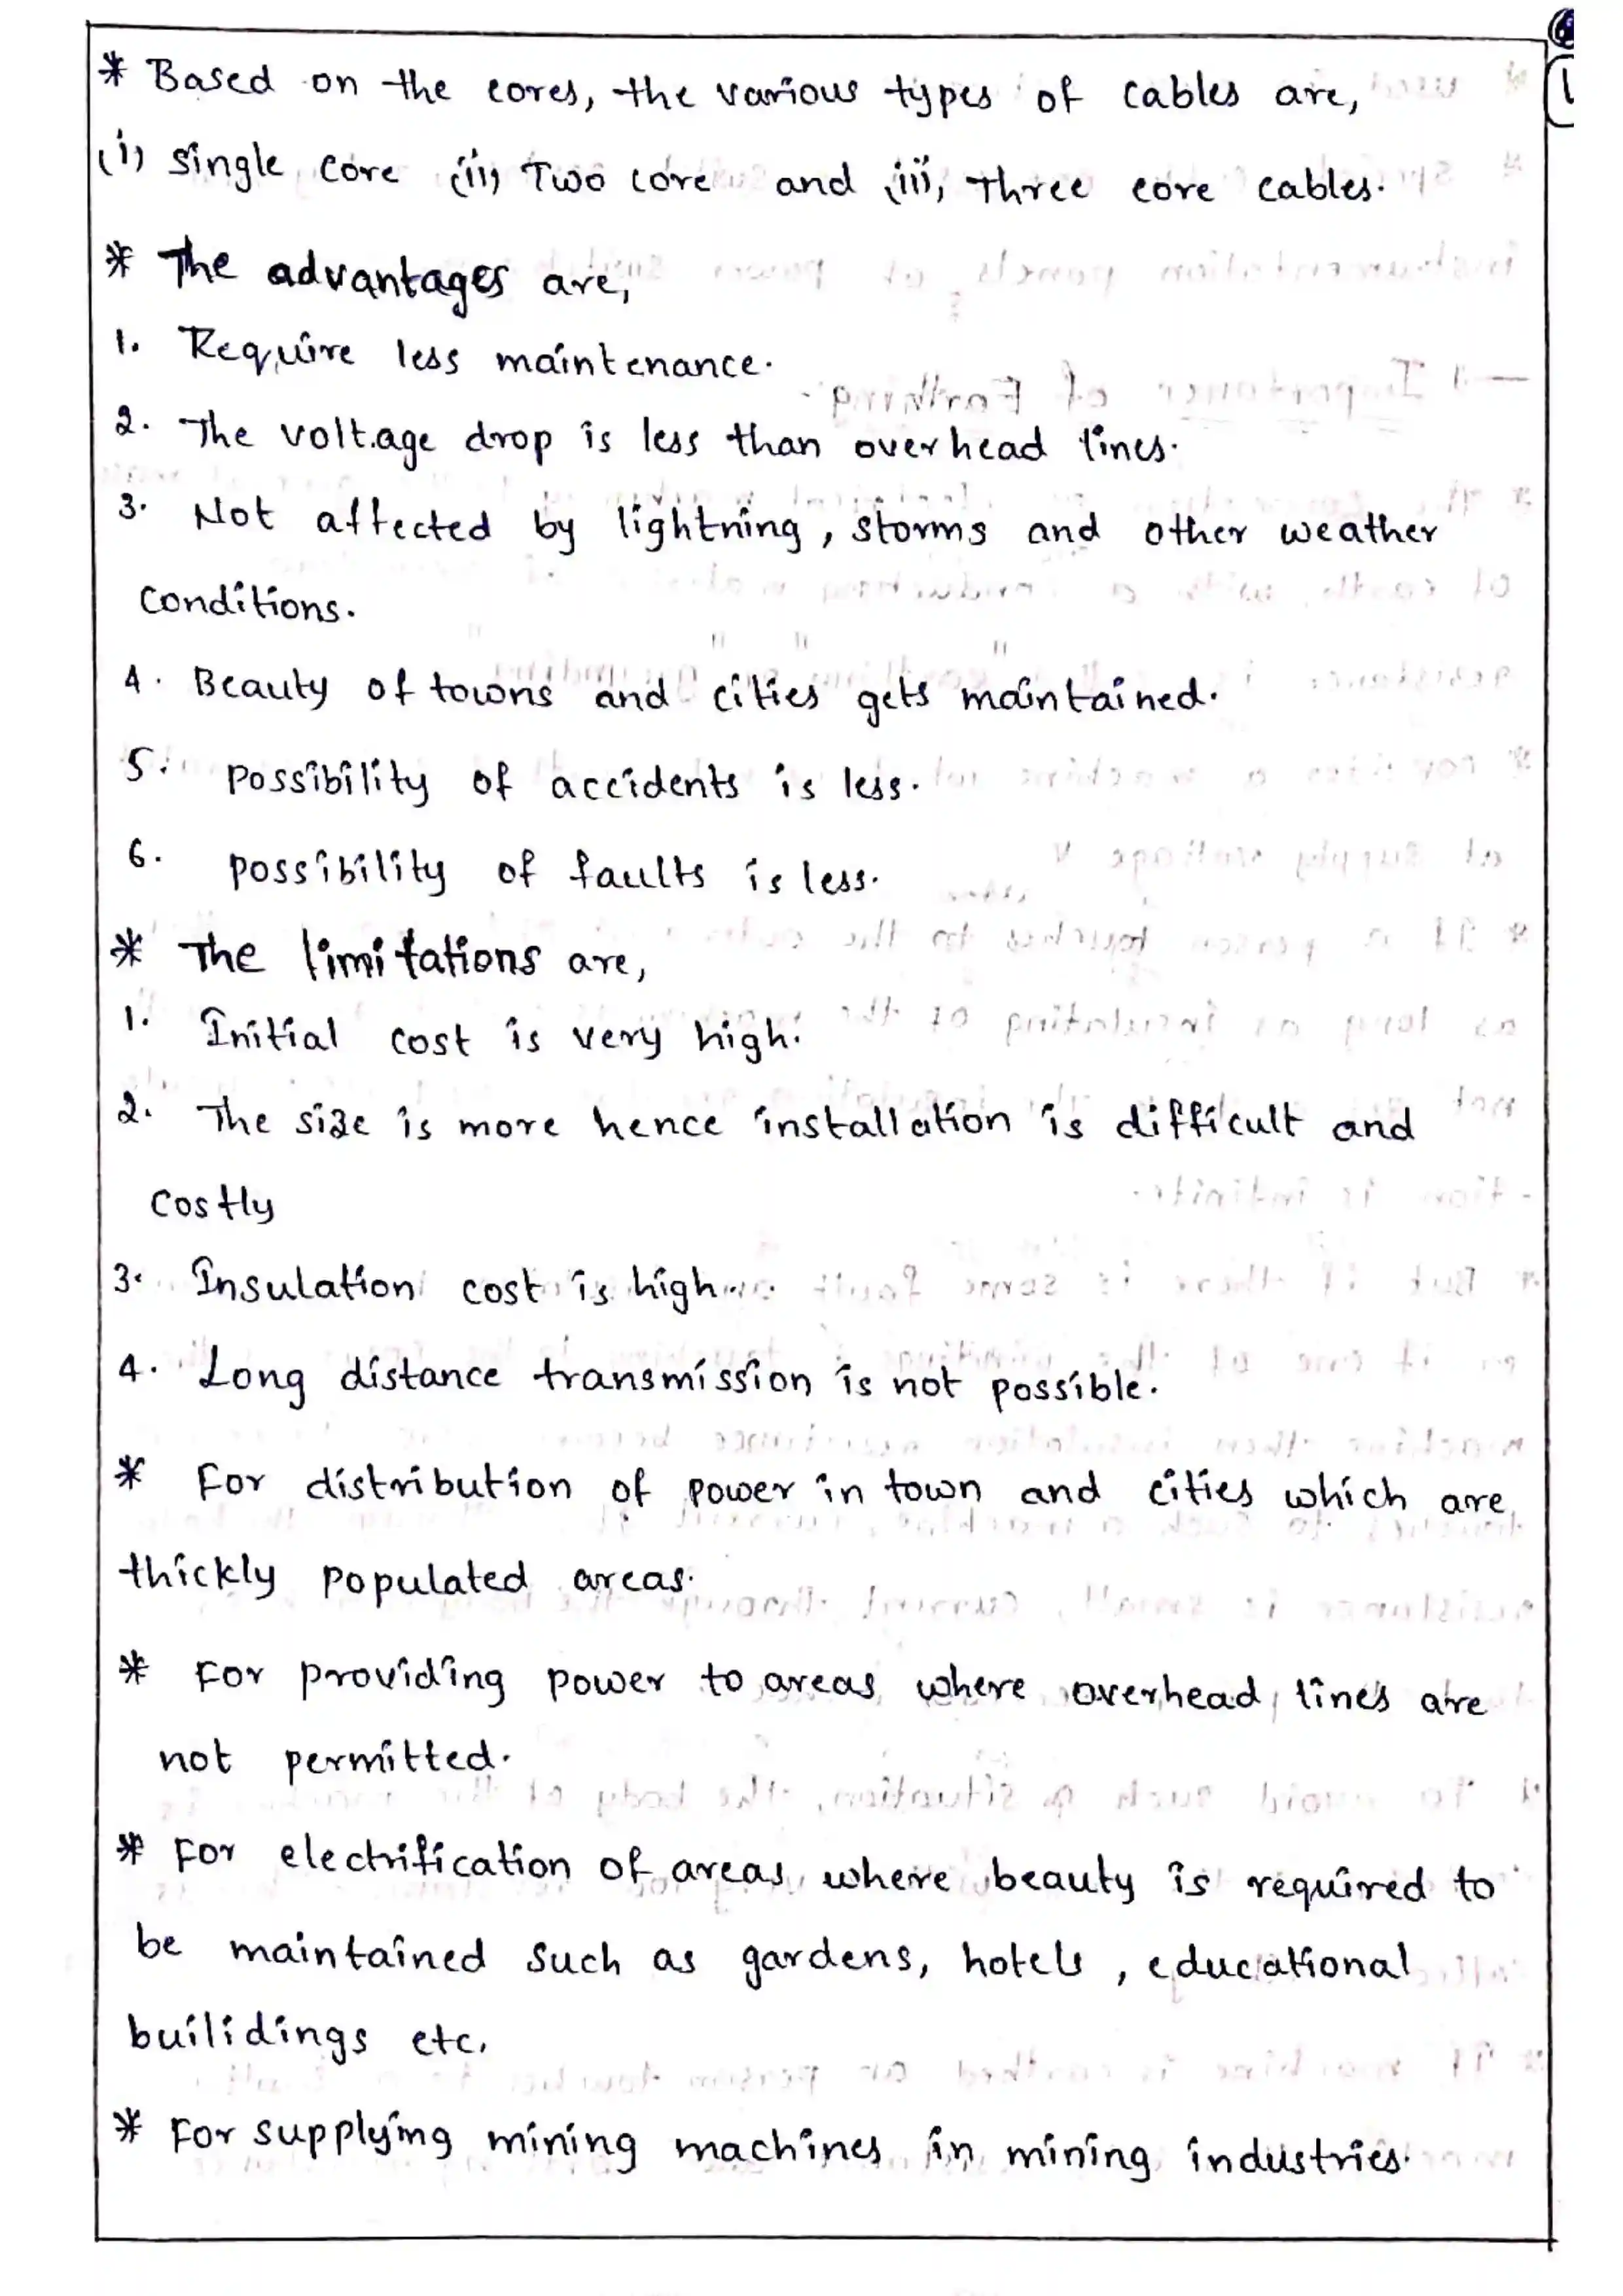 * Based on the cores, the various types of cables are,
(i) Single core (ii) Two core and (iii) three core cables.
* The advantages are,
1. Require less maintenance.
2. The voltage drop is less than overhead lines.
3. Not affected by lightning, storms and other weather
conditions.
4. Beauty of towns and cities gets maintained.
5. Possibility of accidents is less.
6. Possibility of faults is less.
* The limitations are,
1. Initial cost is very high.
2. The size is more hence installation is difficult and
costly
3. Insulation cost is high.
4. Long distance transmission is not possible.
* For distribution of power in town and cities which are
thickly populated areas.
* For providing power to areas where overhead lines are
not permitted.
* For electrification of areas where beauty is required to
be maintained such as gardens, hotels, educational
builidings etc.
* For supplying mining machines in mining industries.